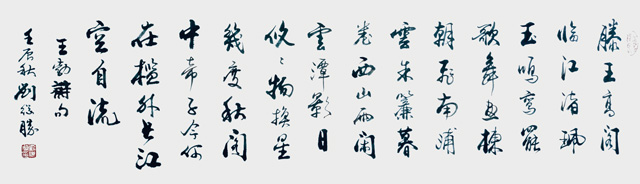 滕王高阁
临江渚珮
玉鸣鸾罢
歌舞画栋
朝飞南浦
雲朱簾暮
卷西山雨闲
雲潭影日
悠〻物换星
幾度秋阁
中帝子今何
在槛外长江
空自流
王勃句
壬辰秋劉勝